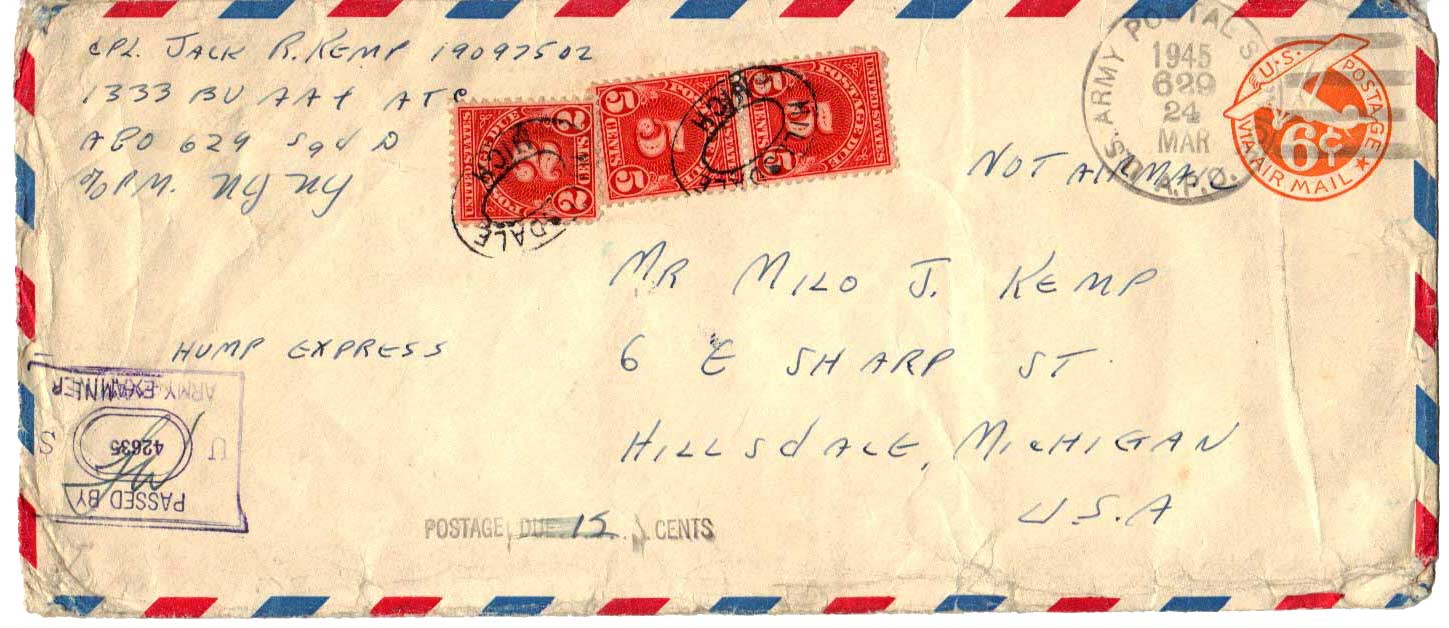 CPL. JACK R. KEMP 19097502
1333 BU AAF ATC
APO 629 Sqd D
c/o P.M. NY NY
U.S. ARMY POSTAL S
A.P.O.
1945
629
24
MAR
U.S. POSTAGE
6¢
VIA AIR MAIL
NOT AIRMAIL
UNITED STATES
POSTAGE DUE
2
POSTAGE DUE
5
POSTAGE DUE
UNITED STATES
5
HILLSDALE
MICH
MR MILO J. KEMP
6 E SHARP ST.
HILLSDALE, MICHIGAN
U.S.A
HUMP EXPRESS
PASSED BY
U 42635 S
ARMY EXAMINER
POSTAGE DUE 15 CENTS